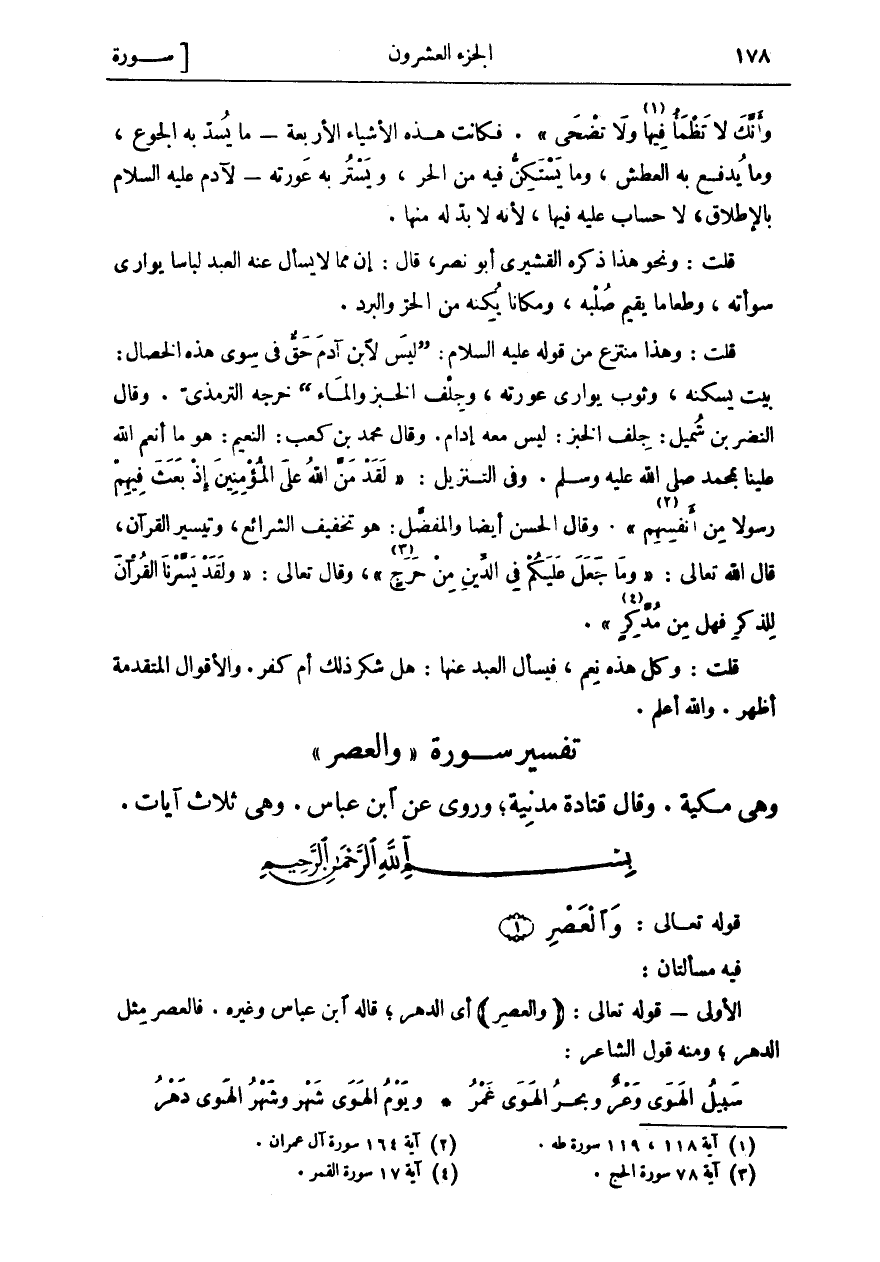 ١٧٨ الجزء العشرون [ ســـورة
وأَنَّكَ لا تَظْمَأُ فِيهَا ولَا تَضْحَى » (١) . فكانت هــذه الأشياء الأربعة — ما يُسدّ به الجوع ،
وما يُدفــع به العطش ، وما يَسْتَكِنُّ فيه من الحر ، ويَسْتُر به عَورته — لآدم عليه السلام
بالإطلاق، لا حساب عليه فيها ، لأنه لا بدّ له منها .
قلت : ونحو هذا ذكره القشيرى أبو نصر، قال : إن مما لا يسأل عنه العبد لباسا يوارى
سوأته ، وطعاما يقيم صُلْبه ، ومكانا يُكِنه من الحرّ والبرد .
قلت : وهذا منتزع من قوله عليه السلام : ”ليسَ لآبن آدمَ حَقٌّ فى سِوى هذه الخصال :
بيت يسكنه ، وثوب يوارى عورته ، وجِلْف الخــبز والمـاء“ خرجه الترمذىّ . وقال
النضر بن شُميل : جِلف الخبز : ليس معه إدام . وقال محمد بن كعب : النعيم : هو ما أنعم الله
علينا بمحمد صلى الله عليه وسـلم . وفى التـنزيل : « لَقَدْ مَنَّ اللهُ علَى المُؤْمِنِينَ إذْ بَعَثَ فِيهِمْ
رسولا مِن أَنفسِهِم » (٢) . وقال الحسن أيضا والمفضَّل : هو تخفيف الشرائع ، وتيسير القرآن ،
قال الله تعالى : « وما جَعَلَ عَلَيكُمْ فِي الدِّينِ مِنْ حَرَجٍ » (٣) ، وقال تعالى : « ولَقَدْ يَسَّرْنَا القُرْآنَ
لِلذكرِ فهل مِن مُدَّكِرٍ » (٤) .
قلت : وكل هذه نِعم ، فيسأل العبد عنها : هل شكر ذلك أم كفر . والأقوال المتقدمة
أظهر . والله أعلم .
تفسير ســـورة « والعصر »
وهى مـكية . وقال قتادة مدنِية؛ وروى عن آبن عباس . وهى ثلاث آيات .
بِسْـــــمِ ٱللَّهِ ٱلرَّحْمَٰنِ ٱلرَّحِيمِ
قوله تعـالى : وَٱلْعَصْرِ ١
فيه مسألتان :
الأولى — قوله تعالى : ﴿ والعصرِ ﴾ أى الدهر ؛ قاله آبن عباس وغيره . فالعصر مثل
الدهر ؛ ومنه قول الشاعر :
سَبِيلُ الهَـوَى وَعْرٌ وبحـرُ الهَـوَى غَمْرُ * ويَوْمُ الهَوَى شَهْر وشَهْرُ الهَوى دَهْرُ
(١) آية ١١٨ ، ١١٩ سورة طه . (٢) آية ١٦٤ سورة آل عمران .
(٣) آية ٧٨ سورة الحج . (٤) آية ١٧ سورة القمر .